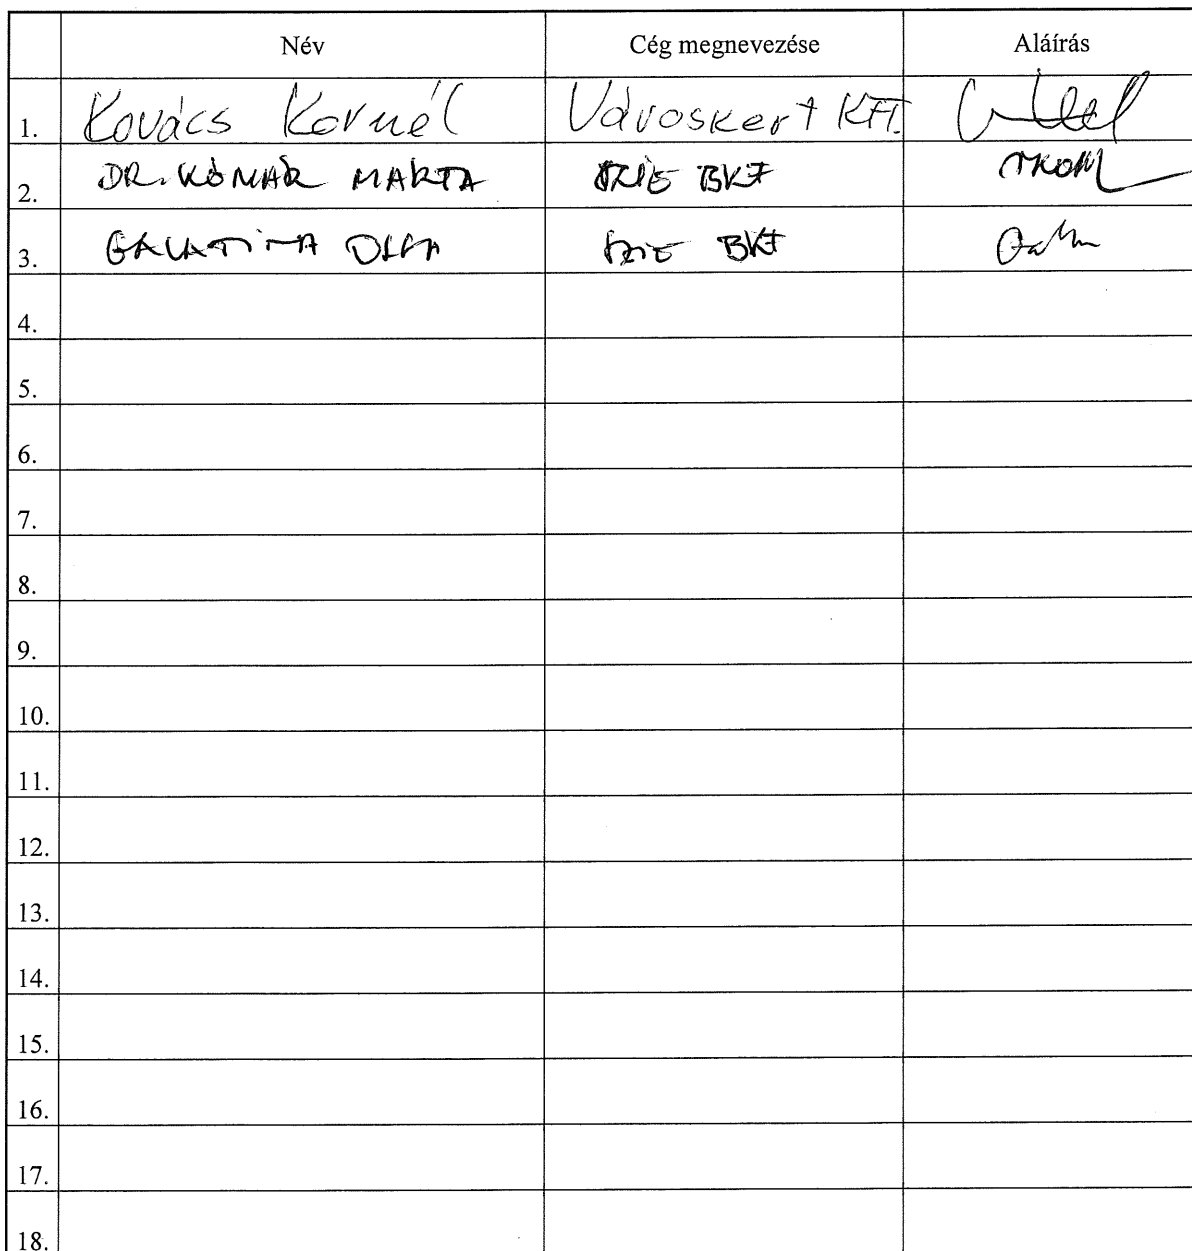 Név Cég megnevezése Aláírás
1. Kovács Kornél Városkert Kft.
2. DR. KÓNÁR MARTA SZIE BKF
3. SZIE BKF
4.
5.
6.
7.
8.
9.
10.
11.
12.
13.
14.
15.
16.
17.
18.